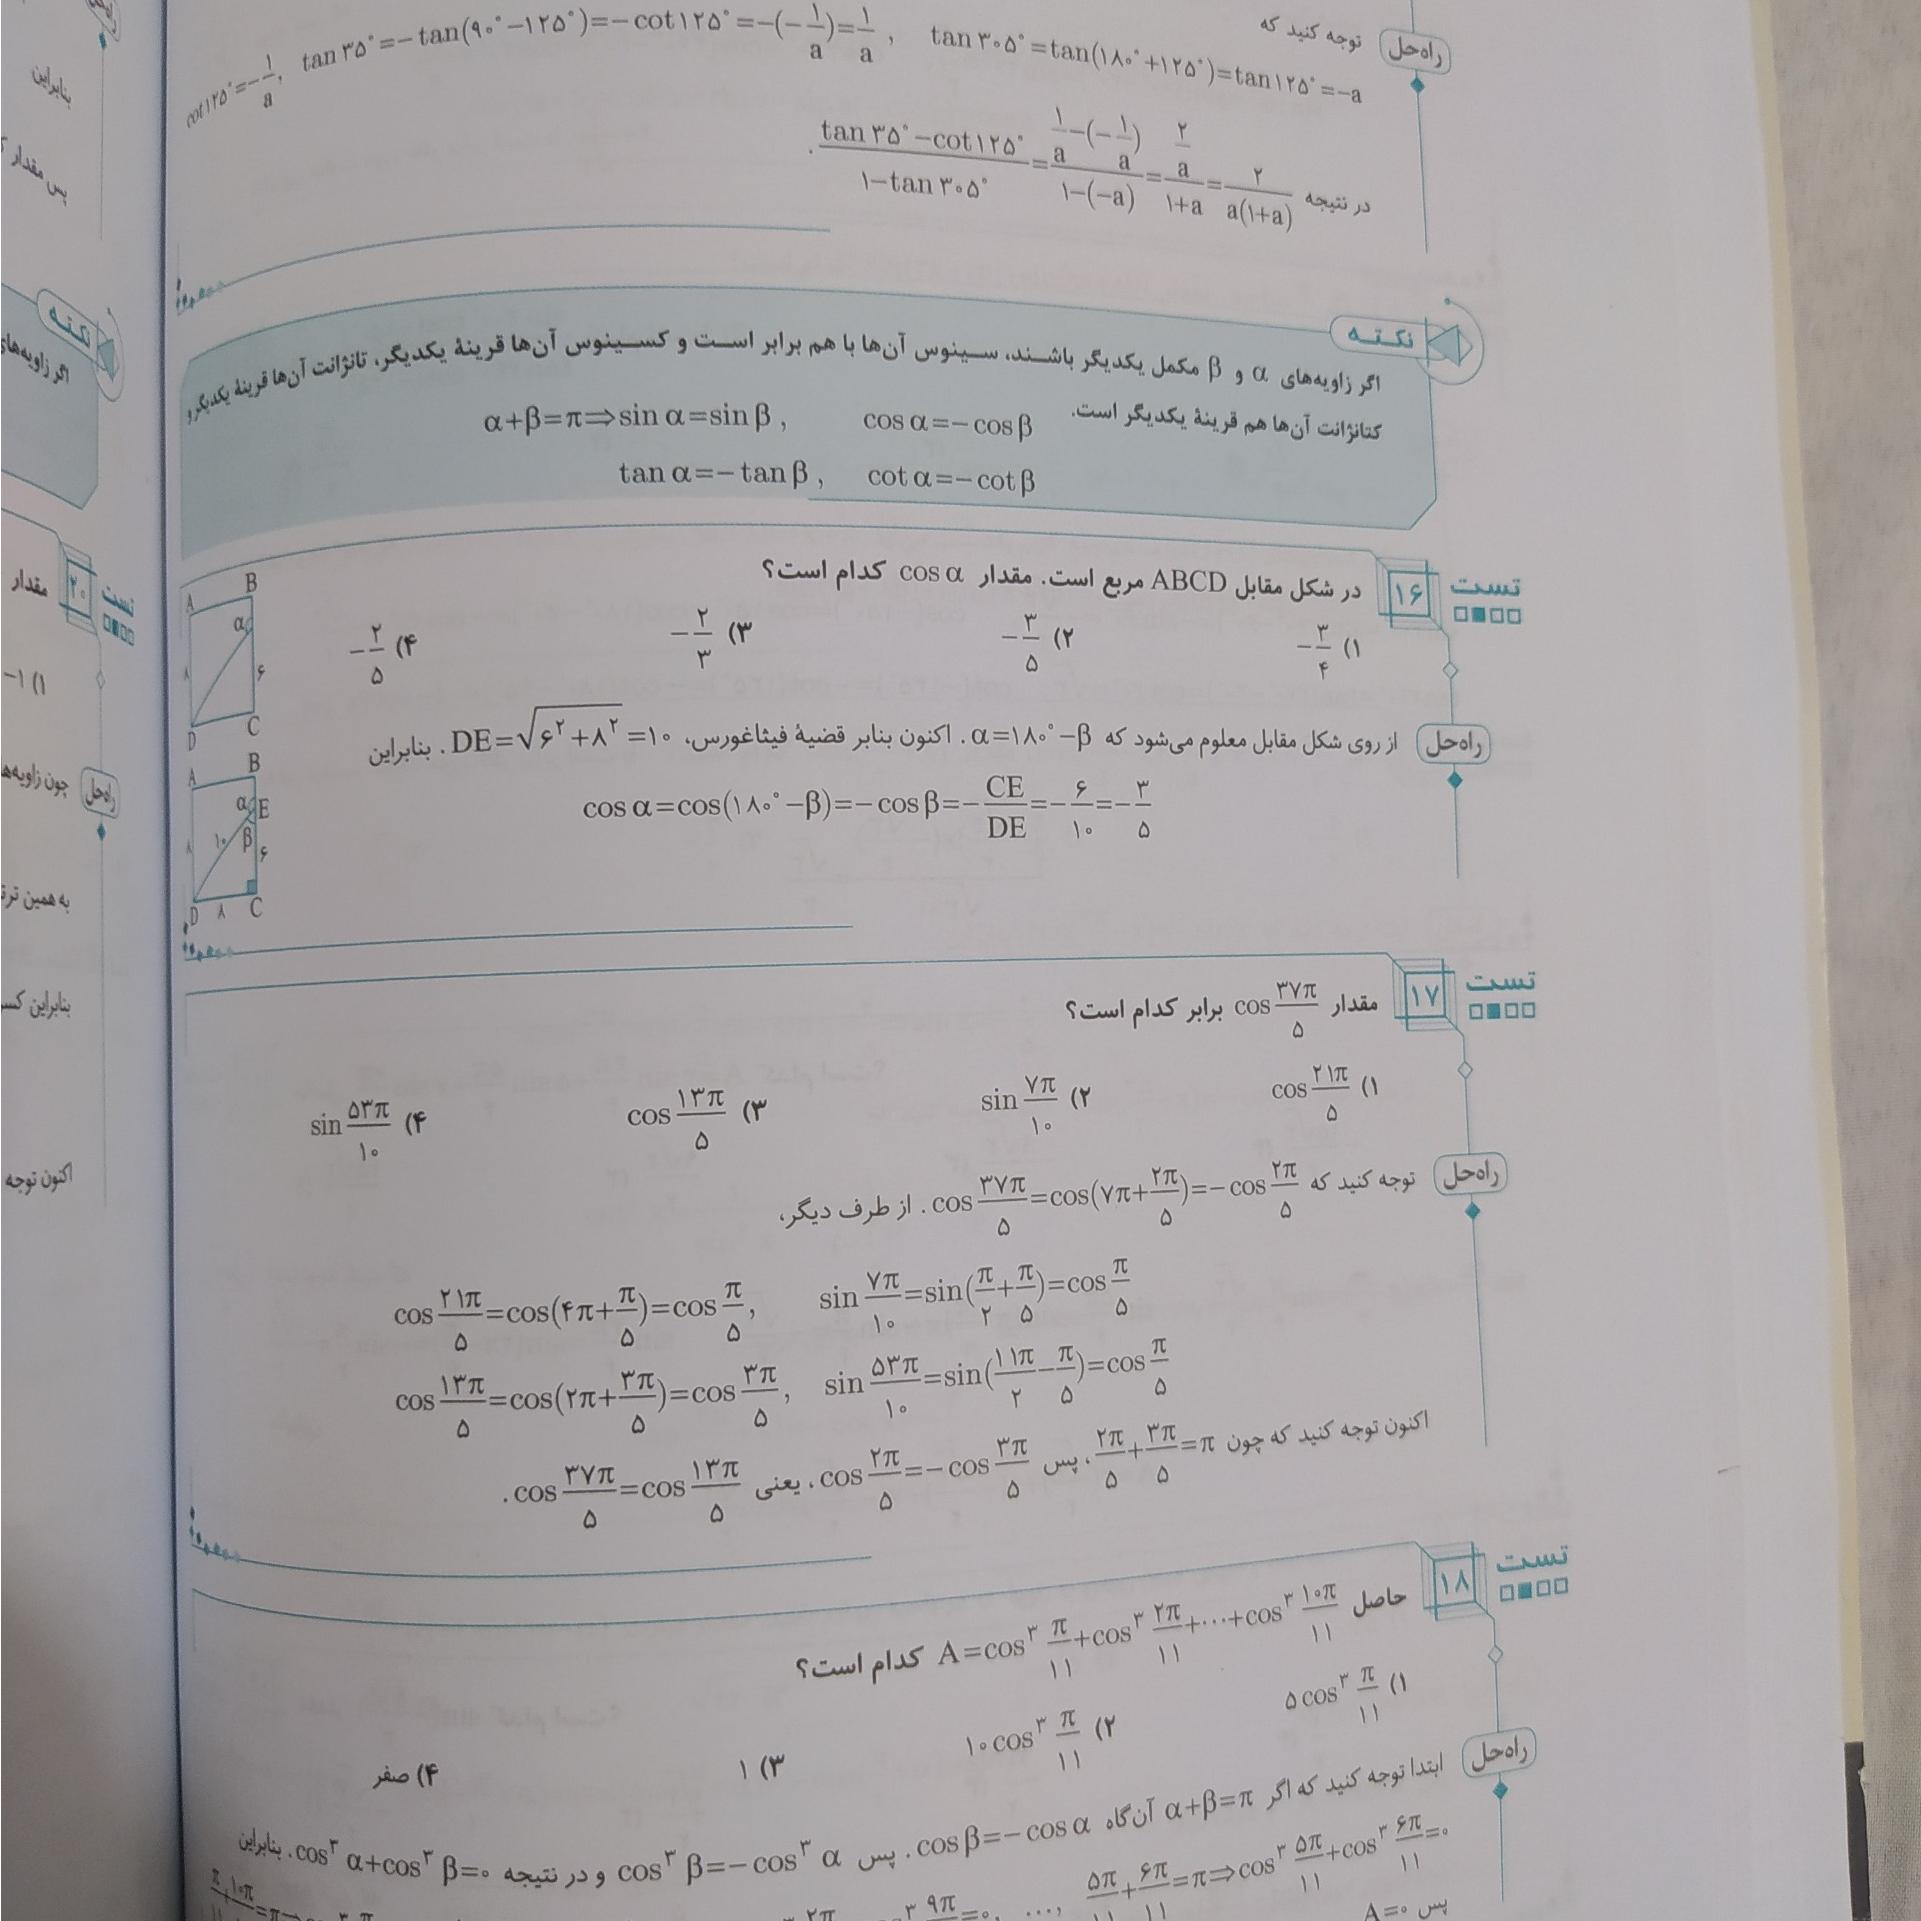 راه‌حل توجه کنید که tan۳۰۵°=tan(۱۸۰°+۱۲۵°)=tan۱۲۵°=-a
cot۱۲۵°=-۱/a, tan۳۵°=-tan(۹۰°-۱۲۵°)=-cot۱۲۵°=-(-۱/a)=۱/a,
در نتیجه (tan۳۵°-cot۱۲۵°)/(۱-tan۳۰۵°)=(۱/a-(-۱/a))/(۱-(-a))=(۲/a)/(۱+a)=۲/(a(۱+a)).
نکته
اگر زاویه‌های α و β مکمل یکدیگر باشند، سینوس آن‌ها با هم برابر است و کسینوس آن‌ها قرینهٔ یکدیگر، تانژانت آن‌ها قرینهٔ یکدیگر و
کتانژانت آن‌ها هم قرینهٔ یکدیگر است.
α+β=π⇒sin α=sin β , cos α=-cos β
tan α=-tan β , cot α=-cot β
تست ۱۶ در شکل مقابل ABCD مربع است. مقدار cos α کدام است؟
۱) -۳/۴ ۲) -۳/۵ ۳) -۲/۳ ۴) -۲/۵
A B α ۸ ۶ D C
راه‌حل از روی شکل مقابل معلوم می‌شود که α=۱۸۰°-β. اکنون بنابر قضیهٔ فیثاغورس، DE=√(۶²+۸²)=۱۰. بنابراین
cos α=cos(۱۸۰°-β)=-cos β=-CE/DE=-۶/۱۰=-۳/۵
A B α E ۱۰ β ۸ ۶ D ۸ C
تست ۱۷ مقدار cos ۳۷π/۵ برابر کدام است؟
۱) cos ۲۱π/۵ ۲) sin ۷π/۱۰ ۳) cos ۱۳π/۵ ۴) sin ۵۳π/۱۰
راه‌حل توجه کنید که cos ۳۷π/۵=cos(۷π+۲π/۵)=-cos ۲π/۵. از طرف دیگر،
cos ۲۱π/۵=cos(۴π+π/۵)=cos π/۵, sin ۷π/۱۰=sin(π/۲+π/۵)=cos π/۵
cos ۱۳π/۵=cos(۲π+۳π/۵)=cos ۳π/۵, sin ۵۳π/۱۰=sin(۱۱π/۲-π/۵)=cos π/۵
اکنون توجه کنید که چون ۲π/۵+۳π/۵=π، پس cos ۲π/۵=-cos ۳π/۵، یعنی cos ۳۷π/۵=cos ۱۳π/۵.
تست ۱۸ حاصل A=cos³ π/۱۱+cos³ ۲π/۱۱+⋯+cos³ ۱۰π/۱۱ کدام است؟
۱) ۵cos³ π/۱۱ ۲) ۱۰cos³ π/۱۱ ۳) ۱ ۴) صفر
راه‌حل ابتدا توجه کنید که اگر α+β=π آن‌گاه cos β=-cos α. پس cos³ β=-cos³ α و در نتیجه cos³ α+cos³ β=۰. بنابراین
⋯, ۵π/۱۱+۶π/۱۱=π⇒cos³ ۵π/۱۱+cos³ ۶π/۱۱=۰
پس A=۰
بنابراین
پس مقدار
نکته
اگر زاویه‌های
تست ۲۰ مقدار
۱) ۱-
راه‌حل چون زاویه‌ه
به همین ترت
بنابراین کس
اکنون توجه